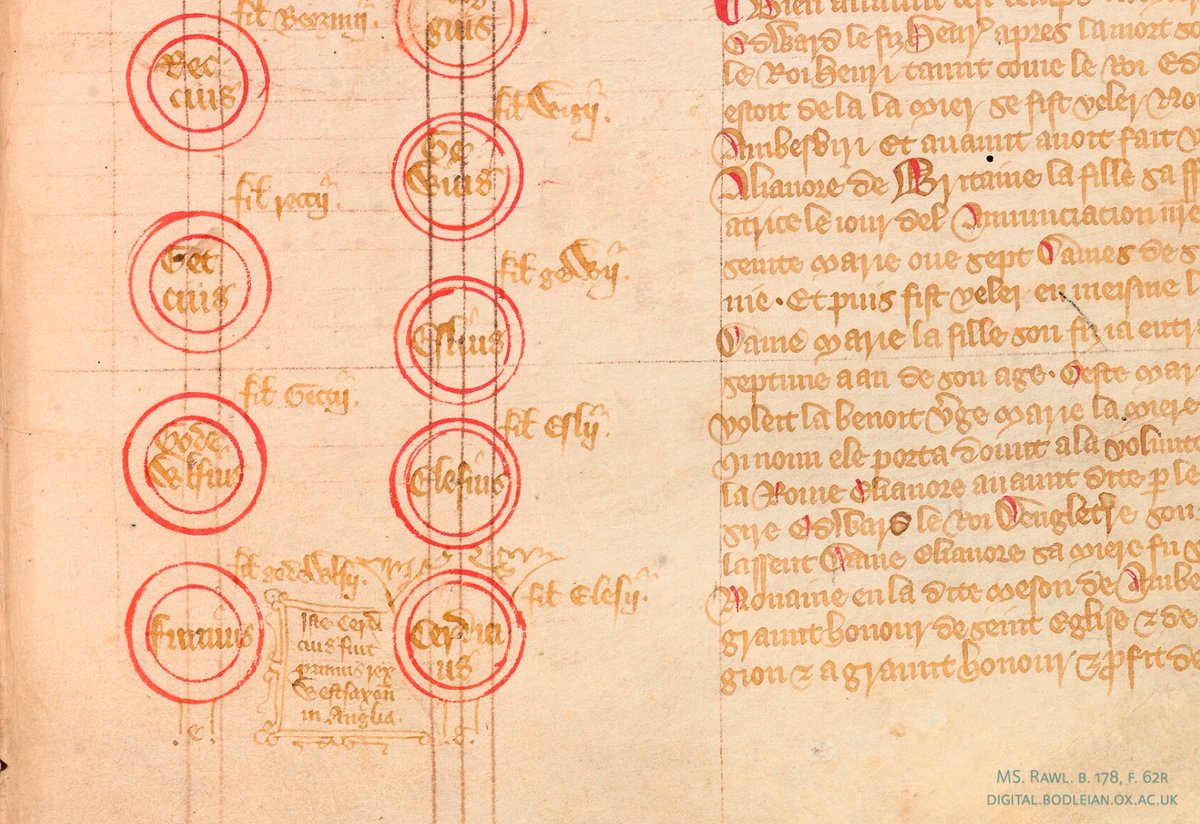 fil Beorinij.
guis
Rec-
cius
fil Wigij.
Ge
Wius
fil reccij.
Get
cius
fil geWij.
Eslius
fil Geccij.
fil Eslij.
Gode
Wlfius
Elesius
fil godeWlfij.
fil Elesij.
Finnius
Iste Cerdi
cius fuit
primus rex
Westsaxon
in Anglia.
Cerdici
us
.c.
Edward le fiz Henrȝ apres la mort
le Roi Henri taunt come le Roi Ed
estoit de la la mier se fist veler No
Aumbesbiri Et avaunt avoit fait
Alianore de Britaine la fille sa
atrice le iour del Annunciation nr̄e
seinte marie oue sept Dames de
nie · Et puis fist veler en meisme l
Dame marie la fille son fiz ia entr
septime aan de son age · Ceste mar
voleit la benoit v̄ge marie la miere
Qi noun ele porta dount a la volunt
la Roine Elianore avaunt dite ꝑ le
sire Edward le Roi Denglet̄re son
lassent Dame Elianore sa miere fu
Nonaine en la dite meson de Aumbe
graunt honour de seint Eglise & de
gion & a graunt honour & ꝓfit de
MS. Rawl. B. 178, f. 62r
digital.bodleian.ox.ac.uk